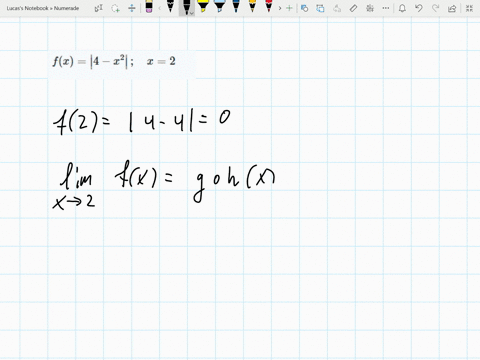 Lucas's Notebook » Numerade
f(x) = |4 − x²| ; x = 2
f(2) = | 4 - 4| = 0
lim f(x) = g o h (x)
x → 2